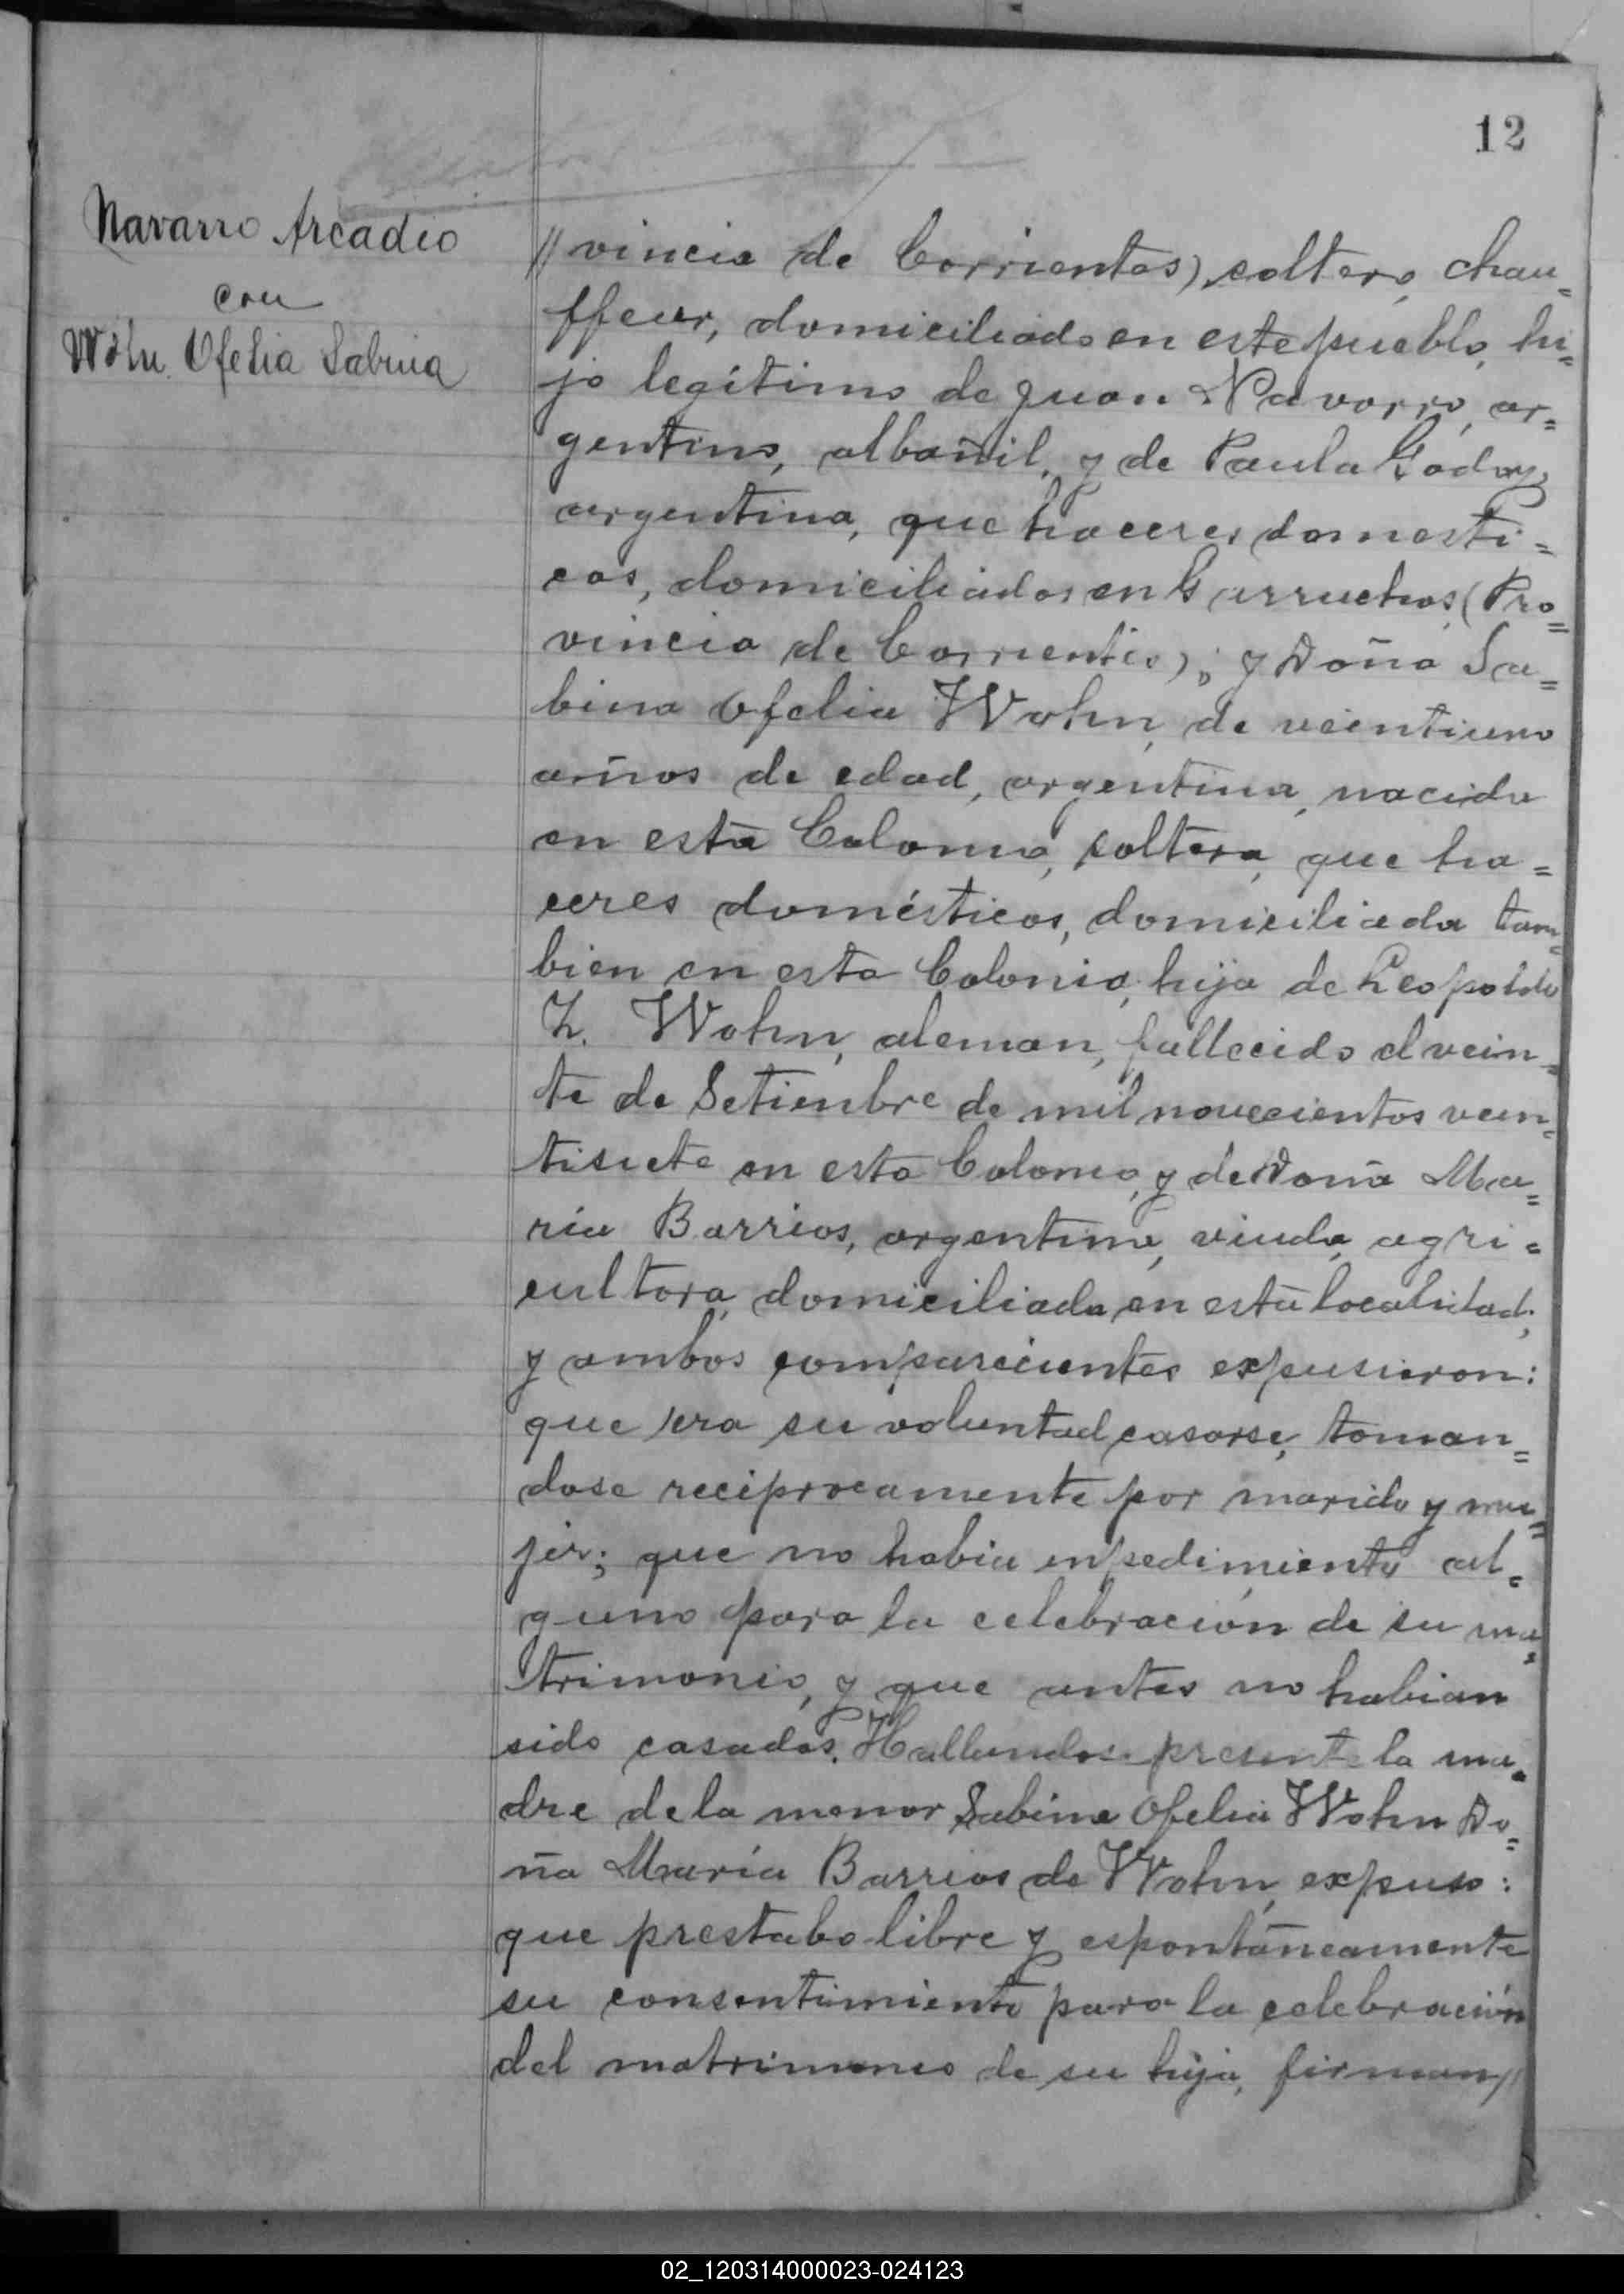 12
Navarro Arcadio
con
Wohn Ofelia Sabina
// vincia de Corrientes), soltero, chau=
ffeur, domiciliado en este pueblo, hi=
jo legítimo de Juan Navarro, ar=
gentino, albañil, y de Paula Godoy,
argentina, que haceres domesti=
cos, domiciliados en Garruchos, (Pro=
vincia de Corrientes); y Doña Sa=
bina Ofelia Wohn, de veintiuno
años de edad, argentina, nacida
en esta Colonia, soltera, que ha=
ceres domésticos, domiciliada tam=
bien en esta Colonia, hija de Leopoldo
Wohn, aleman, fallecido el vein=
te de Setienbre de mil novecientos vein=
tisiete en esta Colonia, y de Doña Ma=
ría Barrios, argentina, viuda, agri=
cultora, domiciliada en esta localidad;
y ambos comparecientes expusieron:
que era su voluntad casarse, toman=
dose reciprocamente por marido y mu=
jer; que no habia inpedimiento al=
guno para la celebración de su ma=
trimonio, y que antes no habian
sido casados. Hallandose presente la ma=
dre de la menor Sabina Ofelia Wohn Do=
ña María Barrios de Wohn, expuso:
que prestaba libre y espontáneamente
su consentimiento para la celebración
del matrimonio de su hija, firman//
02_120314000023-024123